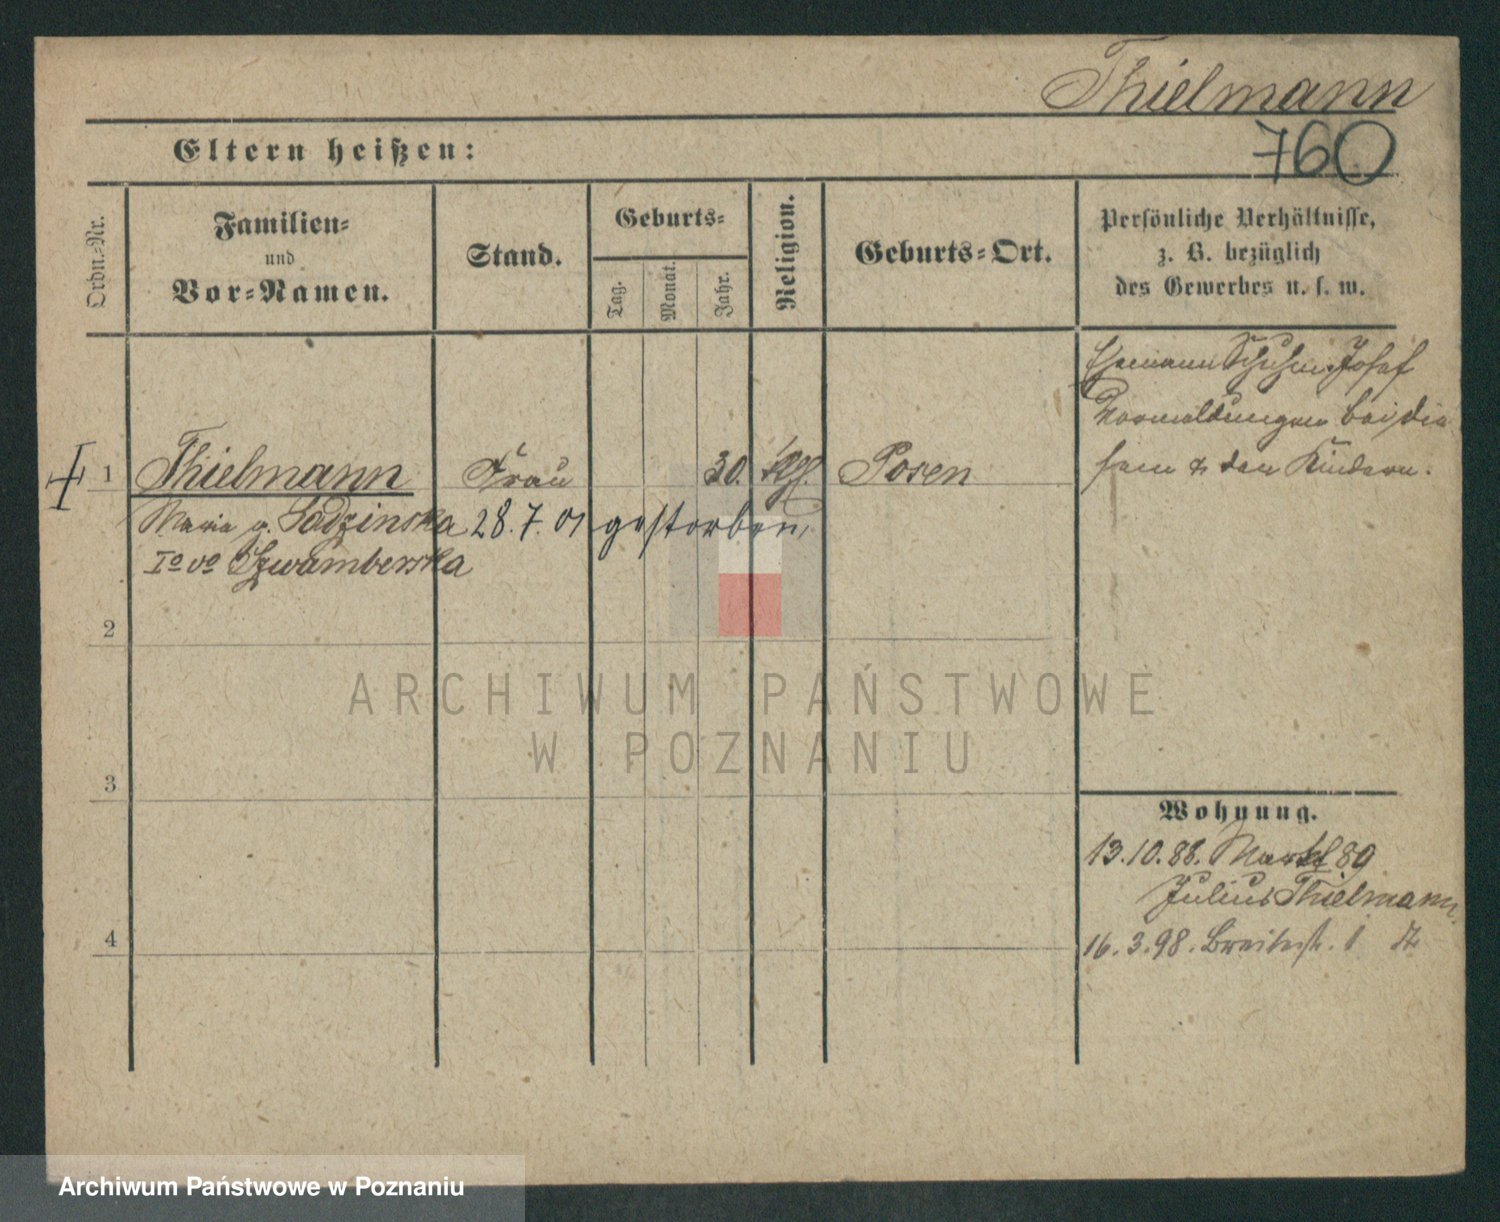 Thielmann
760
Eltern heißen:
Ordn.-Nr.
Familien-
und
Vor-Namen.
Stand.
Geburts-
Tag.
Monat.
Jahr.
Religion.
Geburts-Ort.
Persönliche Verhältnisse,
z. B. bezüglich
des Gewerbes u. s. w.
Ehemann Schuhm. Josef
Vormeldungen bei die
sem & den Kindern.
1 Thielmann Frau 30. kth. Posen
Maria g. Sadzinska 28.7.01 gestorben,
Io vo Szwamberska
2
3
4
Wohnung.
13.10.88. Markt 89
Julius Thielmann
16.3.98. Breitestr. 1
ARCHIWUM PAŃSTWOWE
W POZNANIU
Archiwum Państwowe w Poznaniu